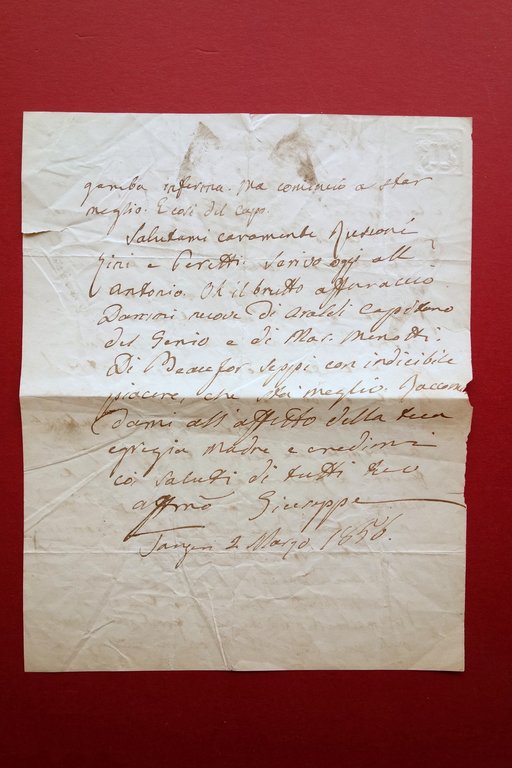 gamba inferma. Ma comincio a star
meglio. E così del capo.
Salutami caramente Russoni
Gini e Peretti. Scrivo oggi all
Antonio. Oh il brutto affaraccio
Dammi nuove di Araldi Capitano
del Genio e di Mar. Menotti.
Di Beaufor seppi con indicibile
piacere, che sta meglio. Raccoman
dami all'affetto della tua
egregia Madre e credimi
co' saluti di tutti tuo
affmo Giuseppe
2 Marzo. 1856.